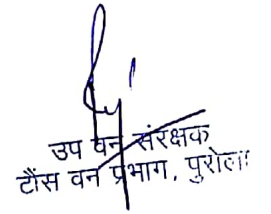 उप वन संरक्षक
टौंस वन प्रभाग, पुरोला